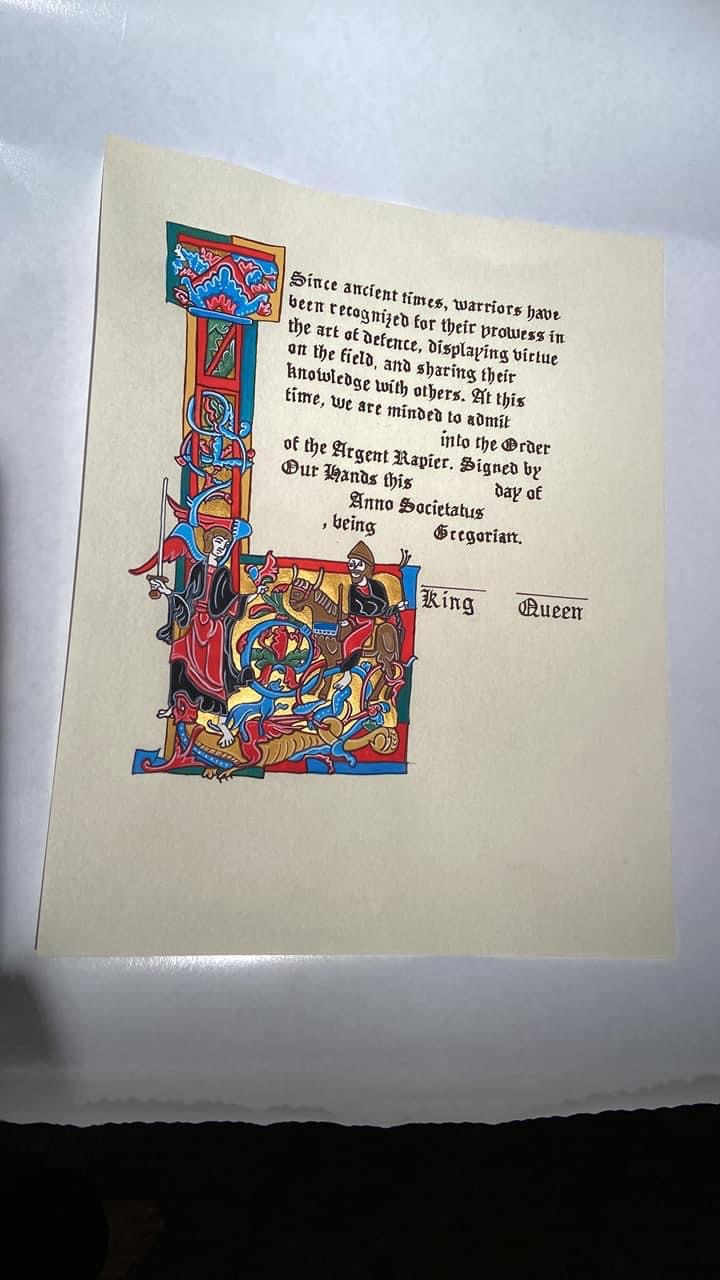 Since ancient times, warriors have
been recognized for their prowess in
the art of defence, displaying virtue
on the field, and sharing their
knowledge with others. At this
time, we are minded to admit
into the Order
of the Argent Rapier. Signed by
Our Hands this day of
Anno Societatus
, being Gregorian.
King Queen